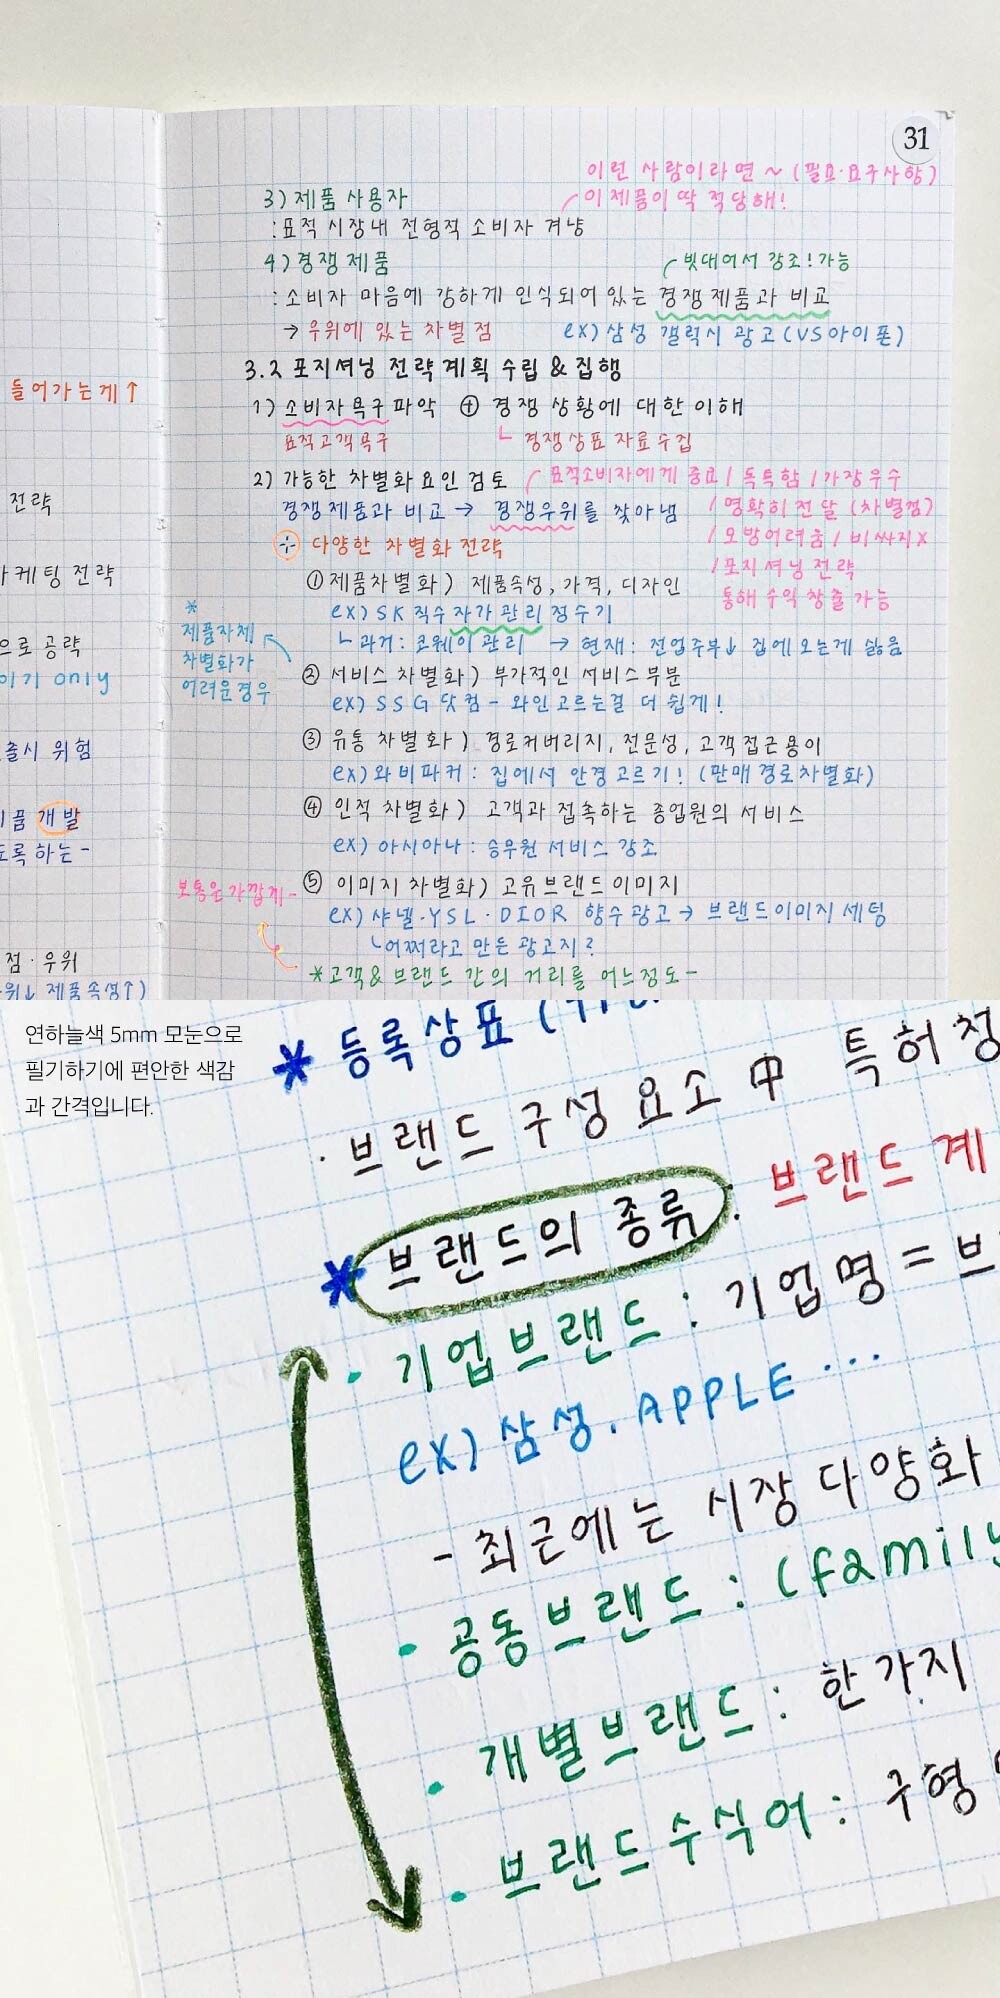 31
이런 사람이라면 ~ (필요·요구사항)
이 제품이 딱 적당해!
3) 제품 사용자
: 표적 시장내 전형적 소비자 겨냥
4) 경쟁 제품
빗대어서 강조! 가능
: 소비자 마음에 강하게 인식되어 있는 경쟁제품과 비교
→ 우위에 있는 차별점 ex) 삼성 갤럭시 광고 (VS아이폰)
3.2 포지셔닝 전략 계획 수립 & 집행
1) 소비자욕구 파악 ⊕ 경쟁 상황에 대한 이해
표적고객욕구 ㄴ 경쟁상표 자료수집
2) 가능한 차별화 요인 검토
표적소비자에게 중요 / 독특함 / 가장우수
/ 명확히 전달 (차별점)
/ 모방어려움 / 비싸지X
/ 포지셔닝 전략
통해 수익 창출 가능
경쟁제품과 비교 → 경쟁우위를 찾아냄
다양한 차별화 전략
① 제품차별화) 제품속성, 가격, 디자인
ex) SK 직수 자가관리 정수기
ㄴ 과거: 코웨이 관리 → 현재: 전업주부↓ 집에 오는게 싫음
*
제품자체
차별화가
어려운경우
② 서비스 차별화) 부가적인 서비스부분
ex) SSG 닷컴 - 와인고르는걸 더 쉽게!
③ 유통 차별화) 경로커버리지, 전문성, 고객접근용이
ex) 와비파커 : 집에서 안경 고르기! (판매 경로차별화)
④ 인적 차별화) 고객과 접촉하는 종업원의 서비스
ex) 아시아나 : 승무원 서비스 강조
⑤ 이미지 차별화) 고유브랜드이미지
ex) 샤넬·YSL·DIOR 향수광고 → 브랜드이미지 세팅
ㄴ어쩌라고 만든 광고지?
*고객&브랜드 간의 거리를 어느정도-
보통은 가깝게-
들어가는게↑
전략
케팅 전략
으로 공략
이기 only
출시 위험
품 개발
도록 하는-
점·우위
위↓ 제품속성↑)
연하늘색 5mm 모눈으로
필기하기에 편안한 색감
과 간격입니다.
* 등록상표
· 브랜드 구성 요소 中 특허청
* 브랜드의 종류 : 브랜드 계
· 기업브랜드 : 기업명 = 브
ex) 삼성. APPLE ...
- 최근에는 시장 다양화
· 공동브랜드 : (family
· 개별브랜드 : 한가지
· 브랜드수식어 : 구형